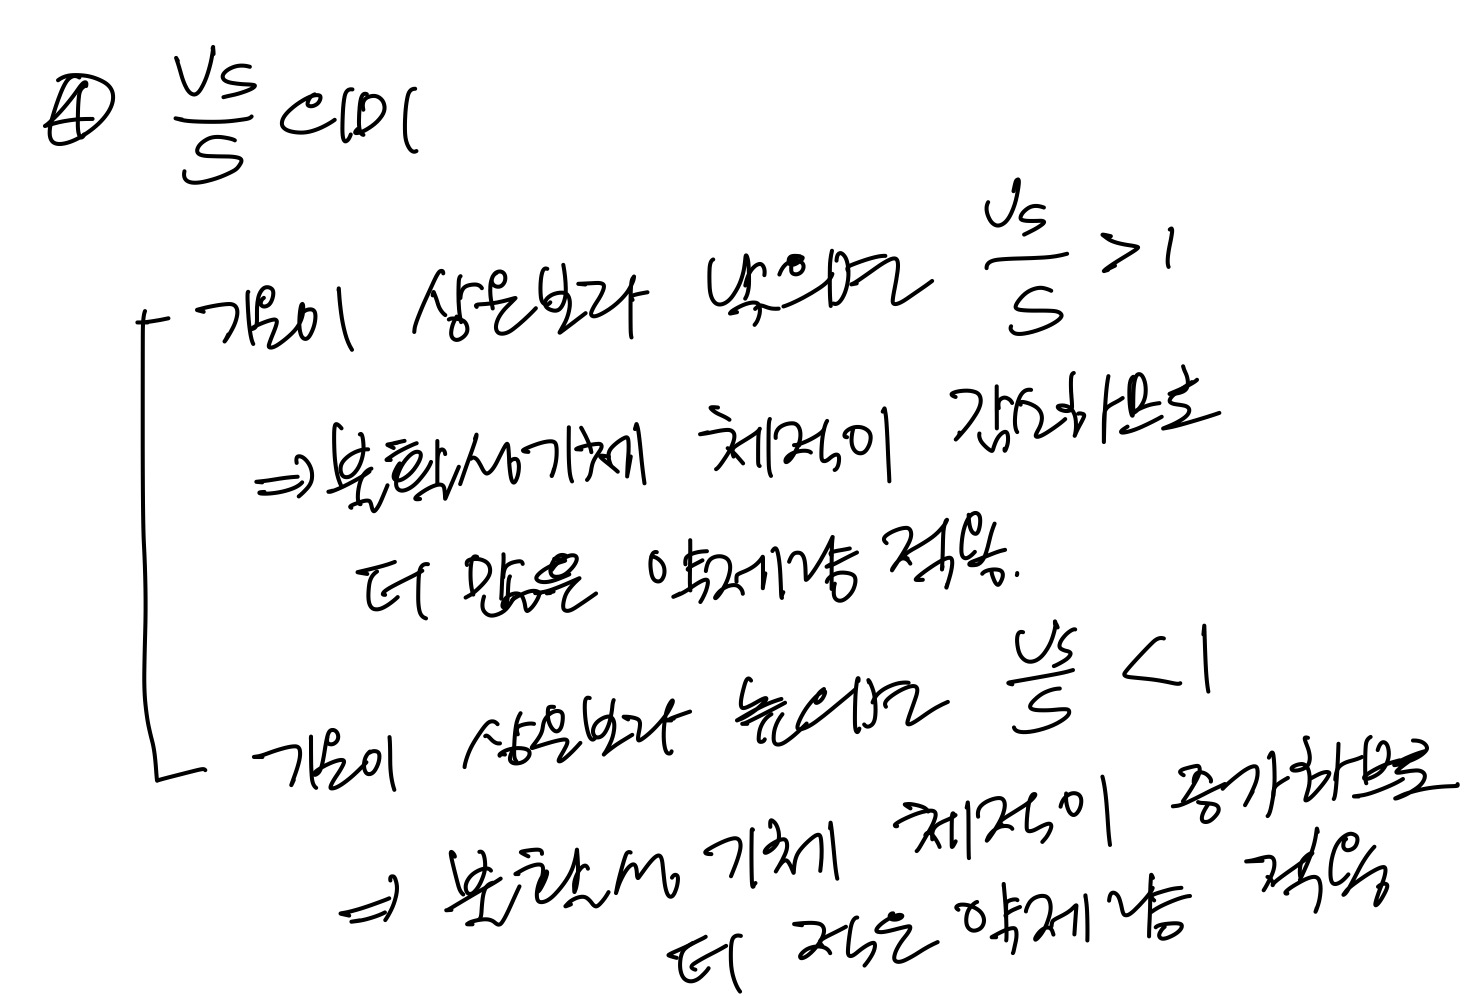 ④ Vs/S 의미
기온이 상온보다 낮으면 Vs/S > 1
⇒ 불활성기체 체적이 감소하므로
더 많은 약제량 적용.
기온이 상온보다 높으면 Vs/S < 1
⇒ 불활성기체 체적이 증가하므로
더 적은 약제량 적용